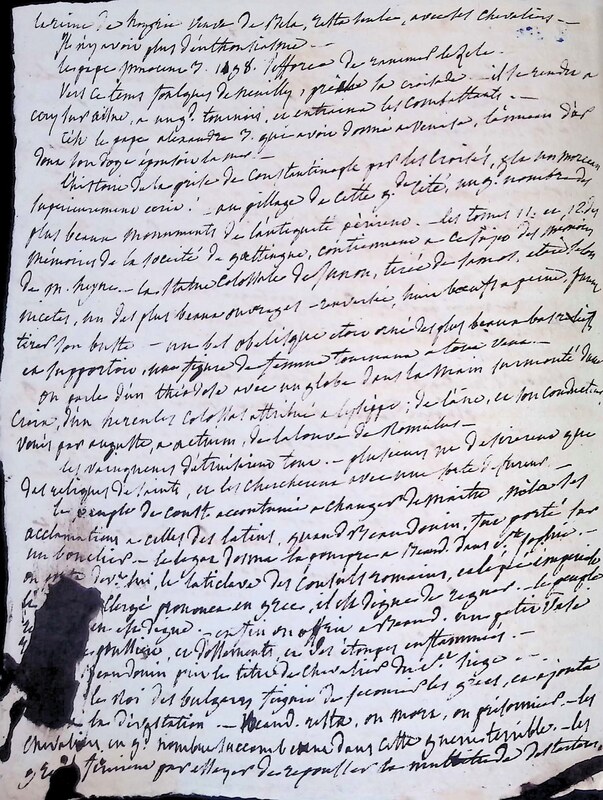 la reine de hongrie veuve de Bela, resta seule, avec ses chevaliers —
Il n'y avoit plus d'enthousiasme. —
le pape Innocent 3. 1198. s'efforca de ranimer le zele.
Vers ce tems foulques de neuilly, prêcha la croisade — il se rendit a
ecry sur aisne, a un gd. tournoi, et entraina les combattants. —
C'est le pape alexandre 3. qui avoit donné a venise, l'anneau d'or
dont son doge épousoit la mer. —
l'histoire de la prise de Constantinople par les Croisés, est un morceau
superieurement ecrit! — au pillage de cette gde. Cité, un gd. nombre des
plus beaux monuments de l'antiquité périrent. — les tomes 11. et 12. des
memoires de la société de goettingue, contiennent a ce sujet des memoires
de m. heyne. — la statue Colossale de Junon, tirée de samos, etoit selon
nicetas, un des plus beaux ouvrages — renversée, huit boeufs a peine purent
tirer son buste — un bel obelisque etoit orné des plus beaux bas reliefs
et supportoit, une figure de femme tournant a tout vent. —
on parle d'un théodose avec un globe dans la main surmonté d'une
Croix, d'un hercules colossal attribué a lysippe; de l'âne, et son conducteur
voués par auguste, a actium, de la louve de Romulus —
les vainqueurs détruisirent tout. — plusieurs ne desirerent que
des reliques de saints, et les chercherent avec une sorte de fureur. —
le peuple de const. accoutumé a changer de maitre, mêla ses
acclamations a celles des latins, quand Beaudouin, fut porté sur
un bouclier. — le legat donna la pourpre a Beaud. dans Ste. sophie. —
on porta devt. lui, le laticlave des Consuls romains, et l'epée imperiale
le clergé prononca en grec, il est digne de regner — le peuple
il en est digne — enfin on offrit a Beaud. un petit vase
de poussiere, et d'ossements, et des étoupes enflammées. —
Beaudouin prit le titre de Chevalier du St. siege —
le Roi des bulgares feignit de secourir les grecs, et ajouta
a la dévastation. — Beaud. resta, ou mort, ou prisonnier. — les
chevaliers, en gd. nombre succomberent dans cette guerre terrible. — les
grecs finirent par essayer de repousser la multitude